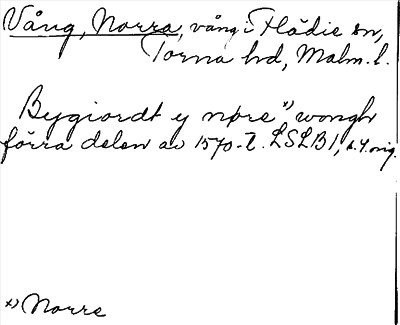 Vång, Norra, vång i Flädie sn,
Torna hd, Malm. l.
Bygiordt y nøre x) wongh
förra delen av 1570-t. LSLB1, s. 4. orig.
x) Norre